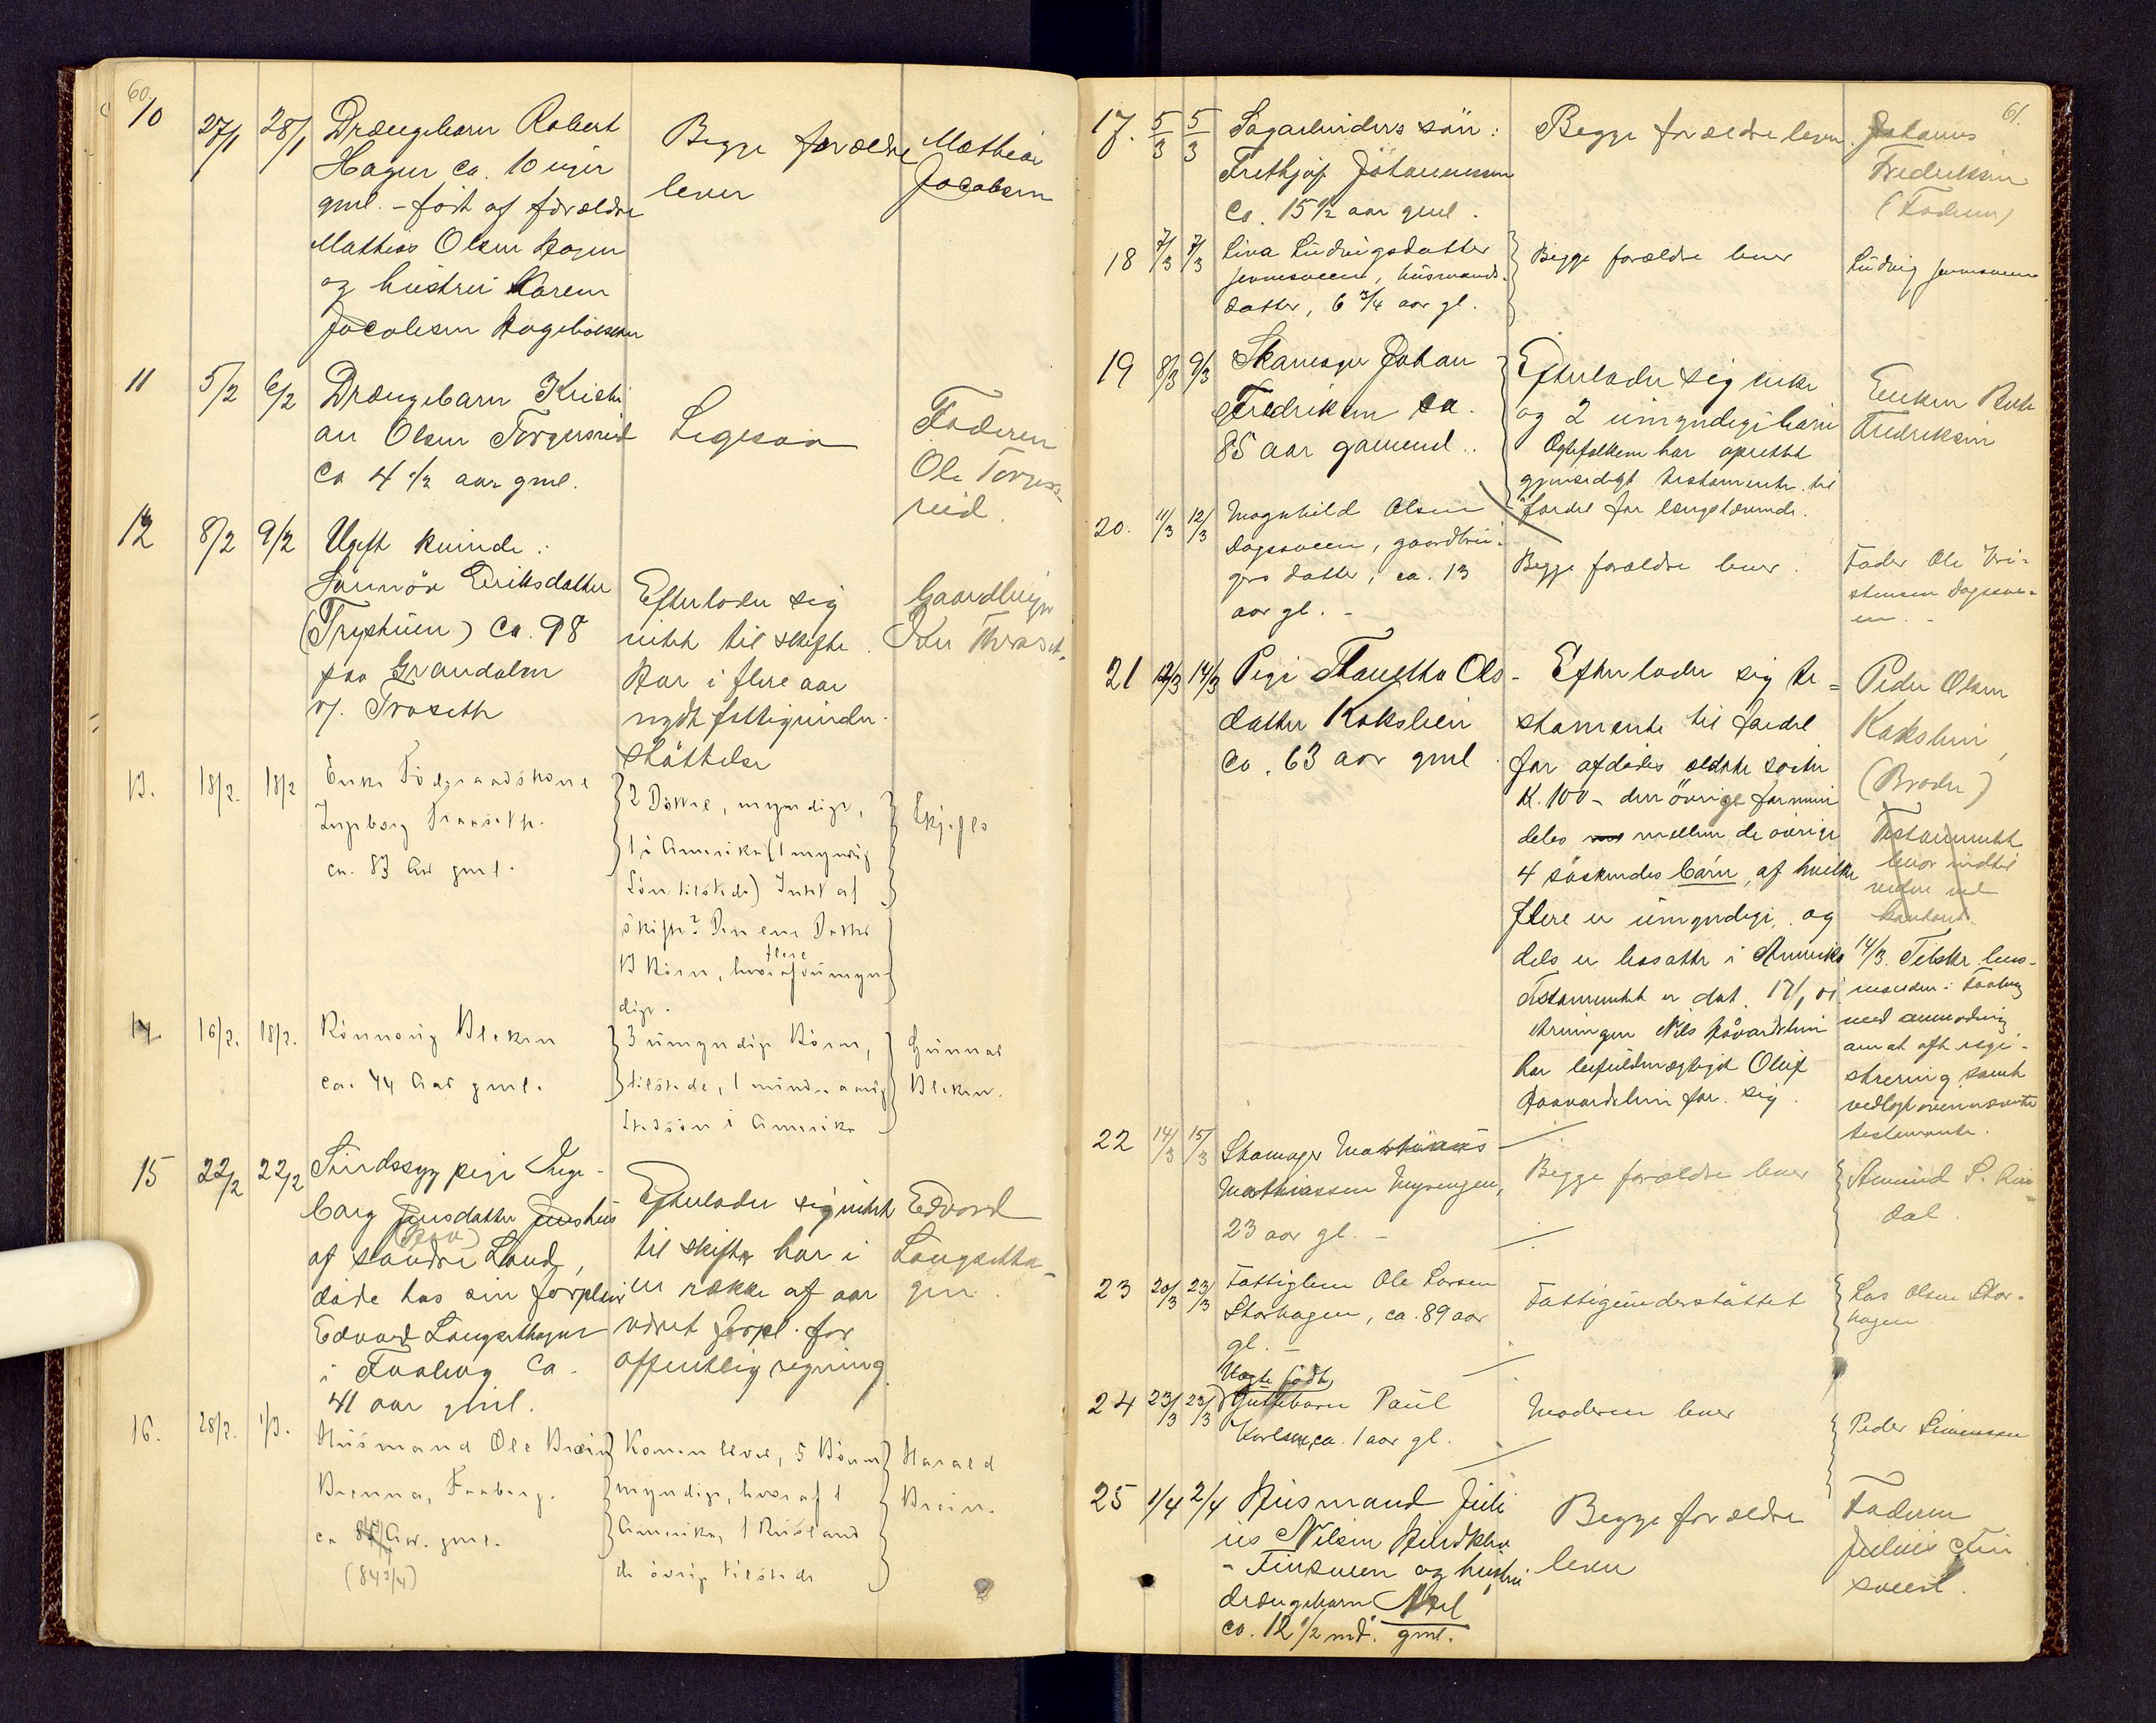 60.
10
27/1
28/1
Drængebarn Robert
Hagen ca. 10 uger
gml. - født af forældre
Mathias Olsen Hagen
og hustru Karen
Jacobsen
Begge forældre
lever
Mathias
Jacobsen
11
5/2
6/2
Drængebarn Kristi
an Olsen Torgersrud
ca 4 1/2 aar gml.
Ligesaa
Faderen
Ole Torgers-
rud.
12
8/2
9/2
Ugift kvinde:
Eriksdatter
(Trystuen) ca. 98
paa Grandalen
v/. Traseth
Efterlader sig
intet til skifte.
Har i flere aar
nydt fattigunder-
støttelse
Gaardbruger
13.
18/2.
18/2
Enke Fodgaardskone
Ingeborg Traaseth.
ca. 83 Aar gml.
2 Døttre, myndige,
1 i Amerika (1 myndig
Søn tilstede) Intet af
skifte? Den ene Datter
13 Børn, hvor af flere umyn-
dige.
14
16/2.
18/2.
Rønnaug Bleken
ca. 44 Aar gml.
3 umyndige Børn,
tilstede, 1 minde aarig
Stedsøn i Amerika
Gunnar
Bleken.
15
22/2
22/2
Sindssyg pige Inge-
borg Jensdatter Jenshus
af søndre Land,
døde hos sin forpleier
Edvard Langsethagen
i Faaberg ca.
41 aar gml.
Efterlader sig intet
til skifte har i
en række af aar
været forpl. for
offentlig regning
Edvard
Langsetha-
gen.
16.
28/2.
1/3.
Husmand Ole Bræin
Brenna, Faaberg.
ca Aar. gml.
(84 3/4)
Konen lever, 5 Børn
myndige, hvor af 1
Amerika, 1 Rusland
de øvrige tilstede
Harald
Bræin.
61.
17.
5/3
5/3
Sagarbeiders søn:
Frethjof Johannessen
Ca. 15 1/2 aar gml.
Begge forældre lever.
Johannes
Fredriksen
(Faderen)
18
7/3
7/3
Lina Ludvigsdatter
Jevnesveen, husmands-
datter, 6 3/4 aar gl.
Begge forældre lever
Ludvig Jevnesveen
19
8/3
9/3
Skomager Johan
Fredriksen ca.
85 aar gammel.
Efterlader sig enke
og 2 umyndige barn
Ægtefolkene har oprettet
gjensidigt testamente til
fordel for længstlevende.
Enken
Fredriksen
20.
11/3
12/3
Magnhild Olsen
Dagsveen, gaardbru-
gers datter, ca. 13
aar gl. -
Begge forældre lever.
Fader Ole Kri-
stensen Dagsve-
en. -
21
12/3
14/3
Pige Thanetta Ols-
datter Kokslien
ca. 63 aar gml
Efterlader sig te-
stamente til fordel
for afdødes ældste søster
K. 100 - den øvrige formue
deles mellem de øvrige
4 søskendes børn, af hvilke
flere er umyndige og
dels er bosatte i Amerika
Testamentet er dat. 17/1 01
Arvingen Nils Haavardslien
har befuldmægtiget Oluf
Haavardslien for sig.
Peder Olsen
Kokslien,
(Broder)
Testamentet
bevor indtil
videre ved
kontoret
14/3. Tilskr. lens-
manden i Faaberg
med anmodning
om at aft regi-
strering samt
vedlagt ovennævnte
testamente.
22
14/3
15/3
Skomager
Mathiassen Myrengen,
23 aar gl. -
Begge forældre lever
Amund S.
dal
23
20/3
23/3
Fattiglem Ole Larsen
Storhagen, ca. 89 aar
gl. -
Fattigunderstøttet
Lars Olsen Stor-
hagen
24
23/3
23/3
Uægte født
Guttebarn Paul
Karlsen, ca. 1 aar gl.
Moderen lever
Peder Simensen
25
1/4
2/4
Husmand Juli
us Nilsen
- Finsveen og hustru
drængebarn Nils
ca. 12 1/2 md. gml.
Begge forældre
lever
Faderen
Julius Fin
sveen.